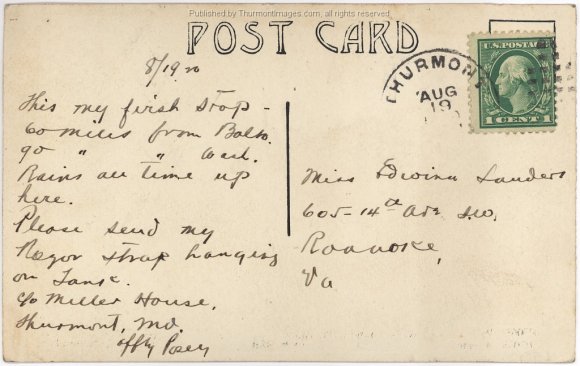 Published by Thurmontimages.com, all rights reserved
POST CARD
U.S. POSTAGE
1 CENT 1
THURMONT
AUG
19
8/19 20
This my first stop -
60 miles from Balto.
90 " " Wash.
Rains all time up
here.
Please send my
Razor strap hanging
on
c/o Miller House,
Thurmont, Md.
Posey
Miss Edwina Sanders
605-14th Ave S.W.
Roanoke,
Va